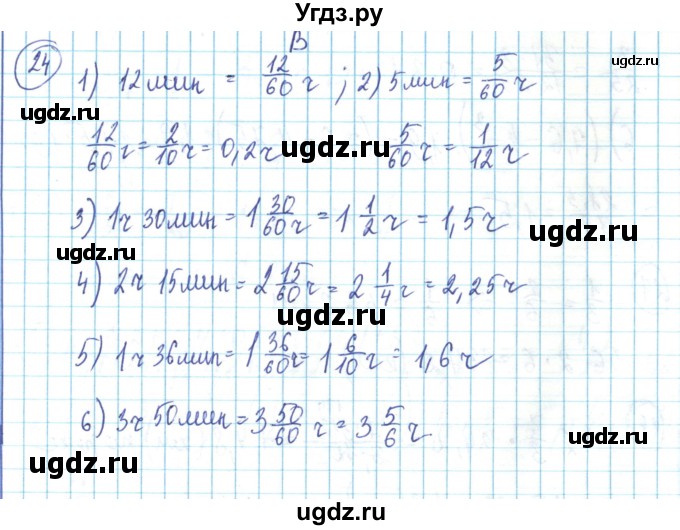 Угдз.ру
24
В
1) 12 мин = 12/60 ч ; 2) 5 мин = 5/60 ч
ugdz.ru
ugdz.ru
12/60 ч = 2/10 ч = 0,2 ч 5/60 ч = 1/12 ч
ugdz.ru
3) 1 ч 30 мин = 1 30/60 ч = 1 1/2 ч = 1,5 ч
ugdz.ru
ugdz.ru
4) 2 ч 15 мин = 2 15/60 ч = 2 1/4 ч = 2,25 ч
ugdz.ru
5) 1 ч 36 мин = 1 36/60 ч = 1 6/10 ч = 1,6 ч
6) 3 ч 50 мин = 3 50/60 ч = 3 5/6 ч
ugdz.ru
ugdz.ru
ugdz.ru